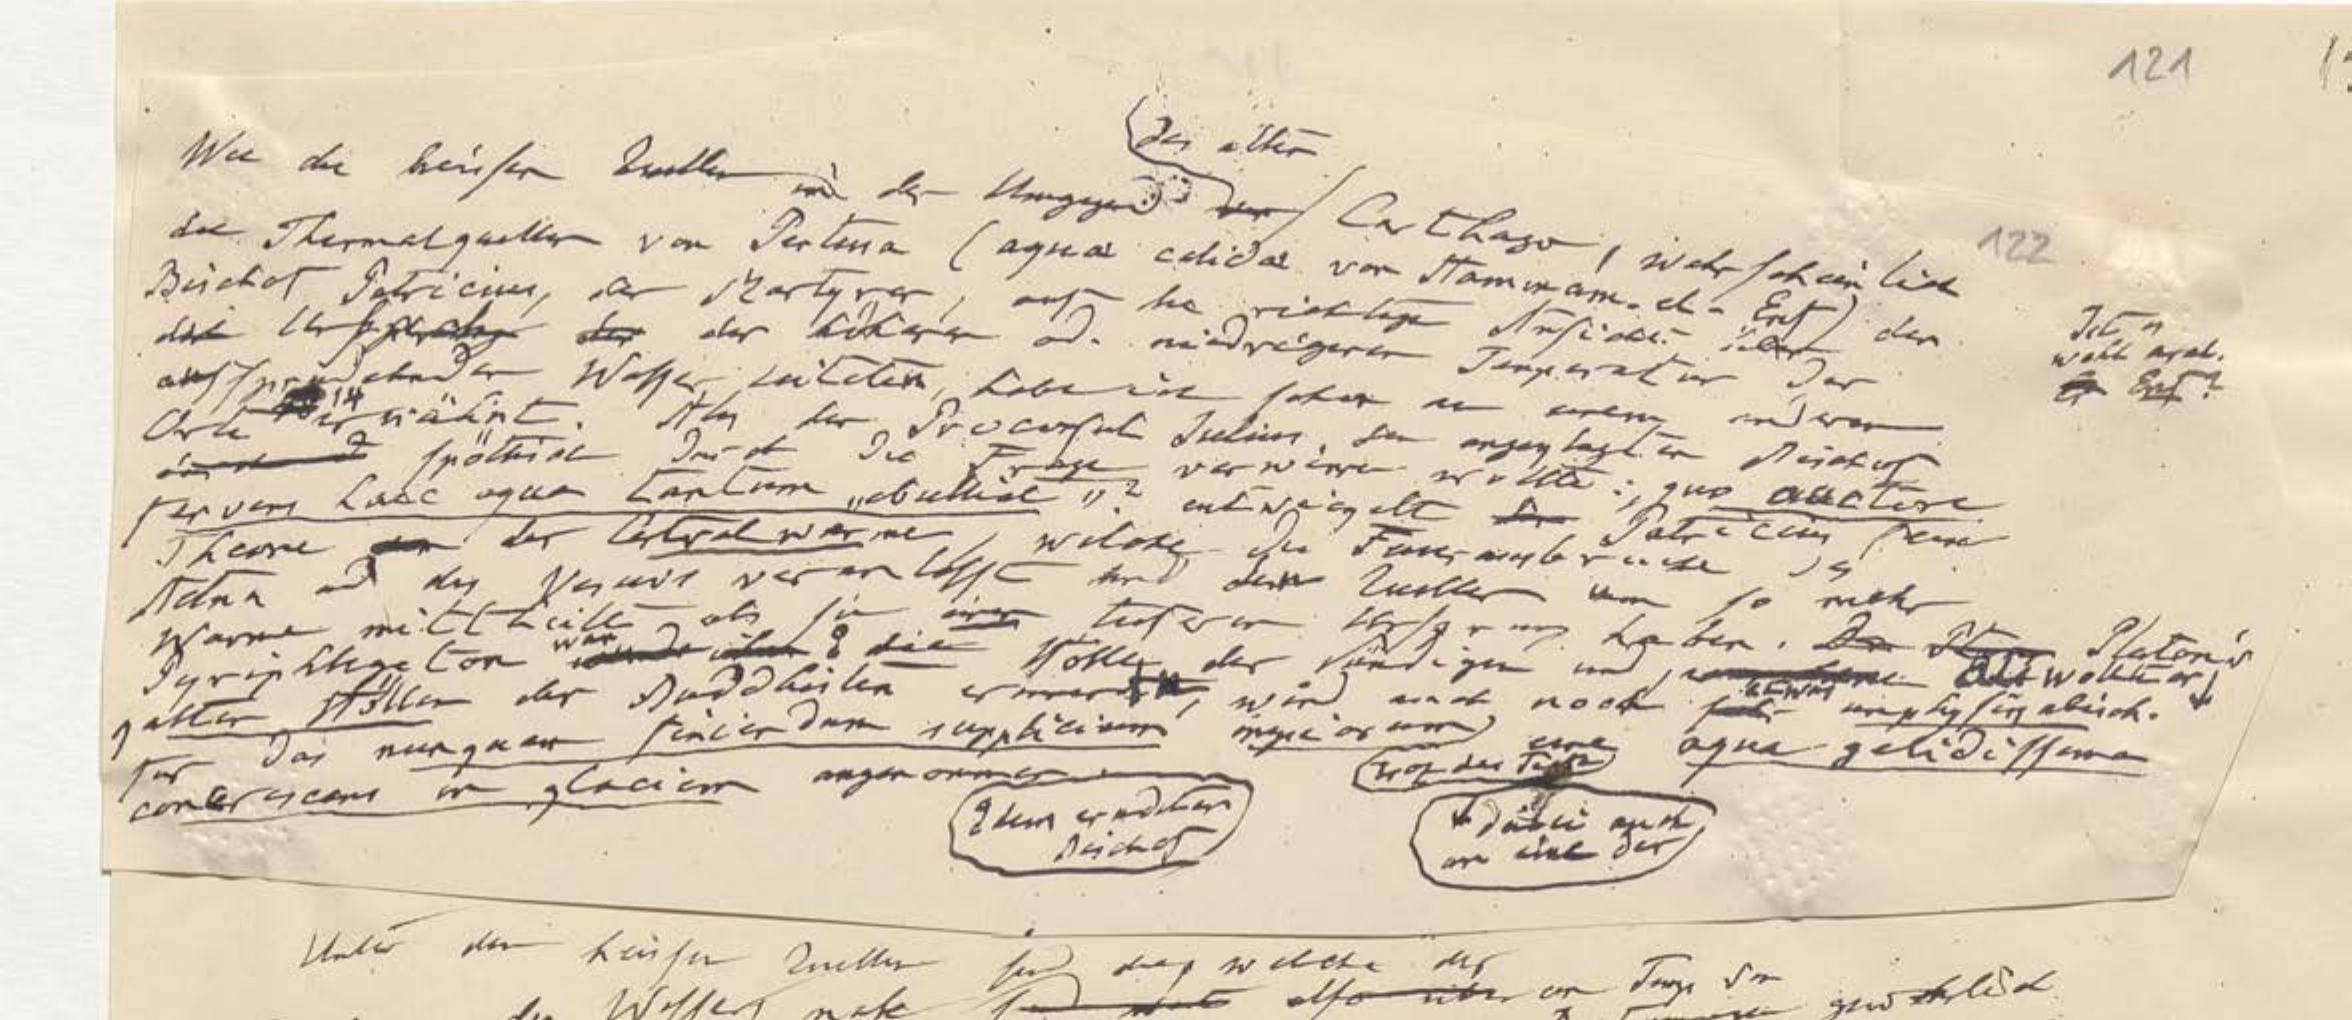 121
122
des alten
Wie die heißen Quellen in der Umgegend von Carthago, wahrscheinlich
die Thermalquellen von Pertusa (aquae calidae von Hammam-el-Enf) den
Bischof Patricius, den Märtyrer, auf die richtige Ansicht über
die Ursprung der der höheren od. niedrigeren Temperatur der
aussprudelnden Wasser leiteten, habe ich schon an einem anderen
Orte erwähnt. Als der Proconsul Julius den angeklagten Bischof
spöttisch durch die Frage verwirren wollte: „quo auctore
fervens haec aqua tantum ebulliat"? entwickelt Patricius seine
Theorie der Centralwärme, welche die Feuerausbrüche des
Aetna und des Vesuvs veranlasst und den Quellen um so mehr
Wärme mittheilt als sie einen tieferen Ursprung haben. Platon's
Pyriphlegeton war die Hölle der Sündigen und
kalten Höllen der Buddhisten erinnern wollte, wird auch noch etwas unphysikalisch
für das nunquam finiendum supplicium impiorum eine aqua gelidissima
concrescens in glaciem angenommen
Ist
wohl arab.
Enf?
dem erudten
Bischof
trotz der Tiefe
dabei auch
an eine der
Unter den heißen Quellen sind die welche der
des Wassers nahe also